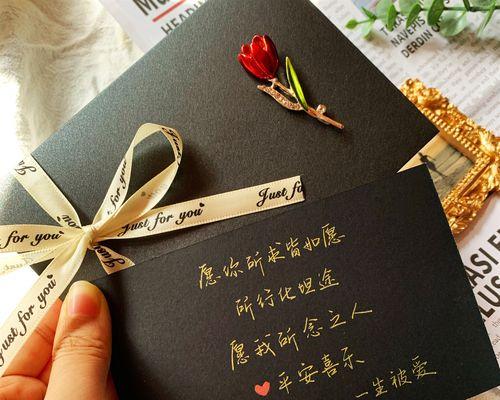 Just for you
Just for you
Just for you
愿你所求皆如愿
所行化坦途
愿我所念之人
平安喜乐
一生被爱